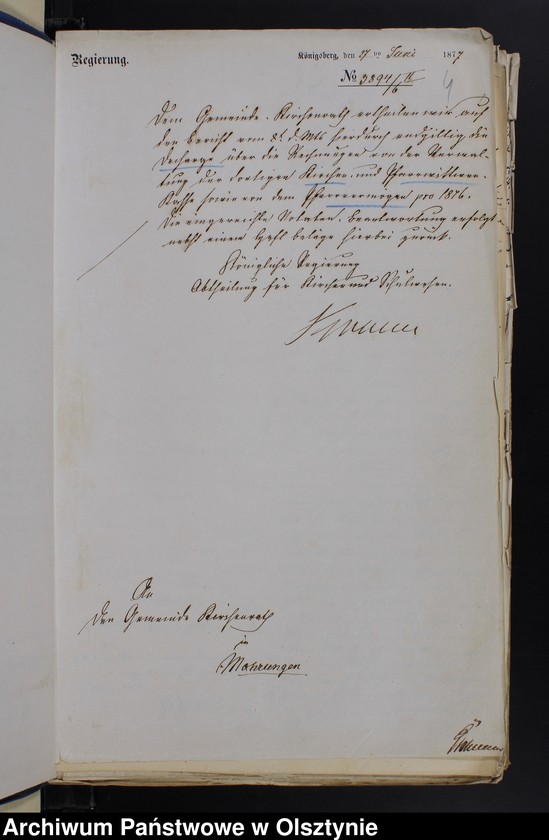 Regierung.
Königsberg, den 27ten Juni 1877
No 3894/6 II
4
Dem Gemeinde-Kirchenrath ertheilen wir auf
den Bericht vom 8t. d. Mts hierdurch endgiltig die
Decharge über die Rechnungen von der Verwal-
tung der dortigen Kirchen- und Pfarrwittwen-
Kasse sowie von dem Pfarrvermögen pro 1876.
Die eingereichte Notaten-beantwortung erfolgt
nebst einem Heft beläge hierbei zurück.
Königliche Regierung
Abtheilung für Kirchen und Schulwesen.
An
den Gemeinde Kirchenrath
in
Mohrungen
Archiwum Państwowe w Olsztynie